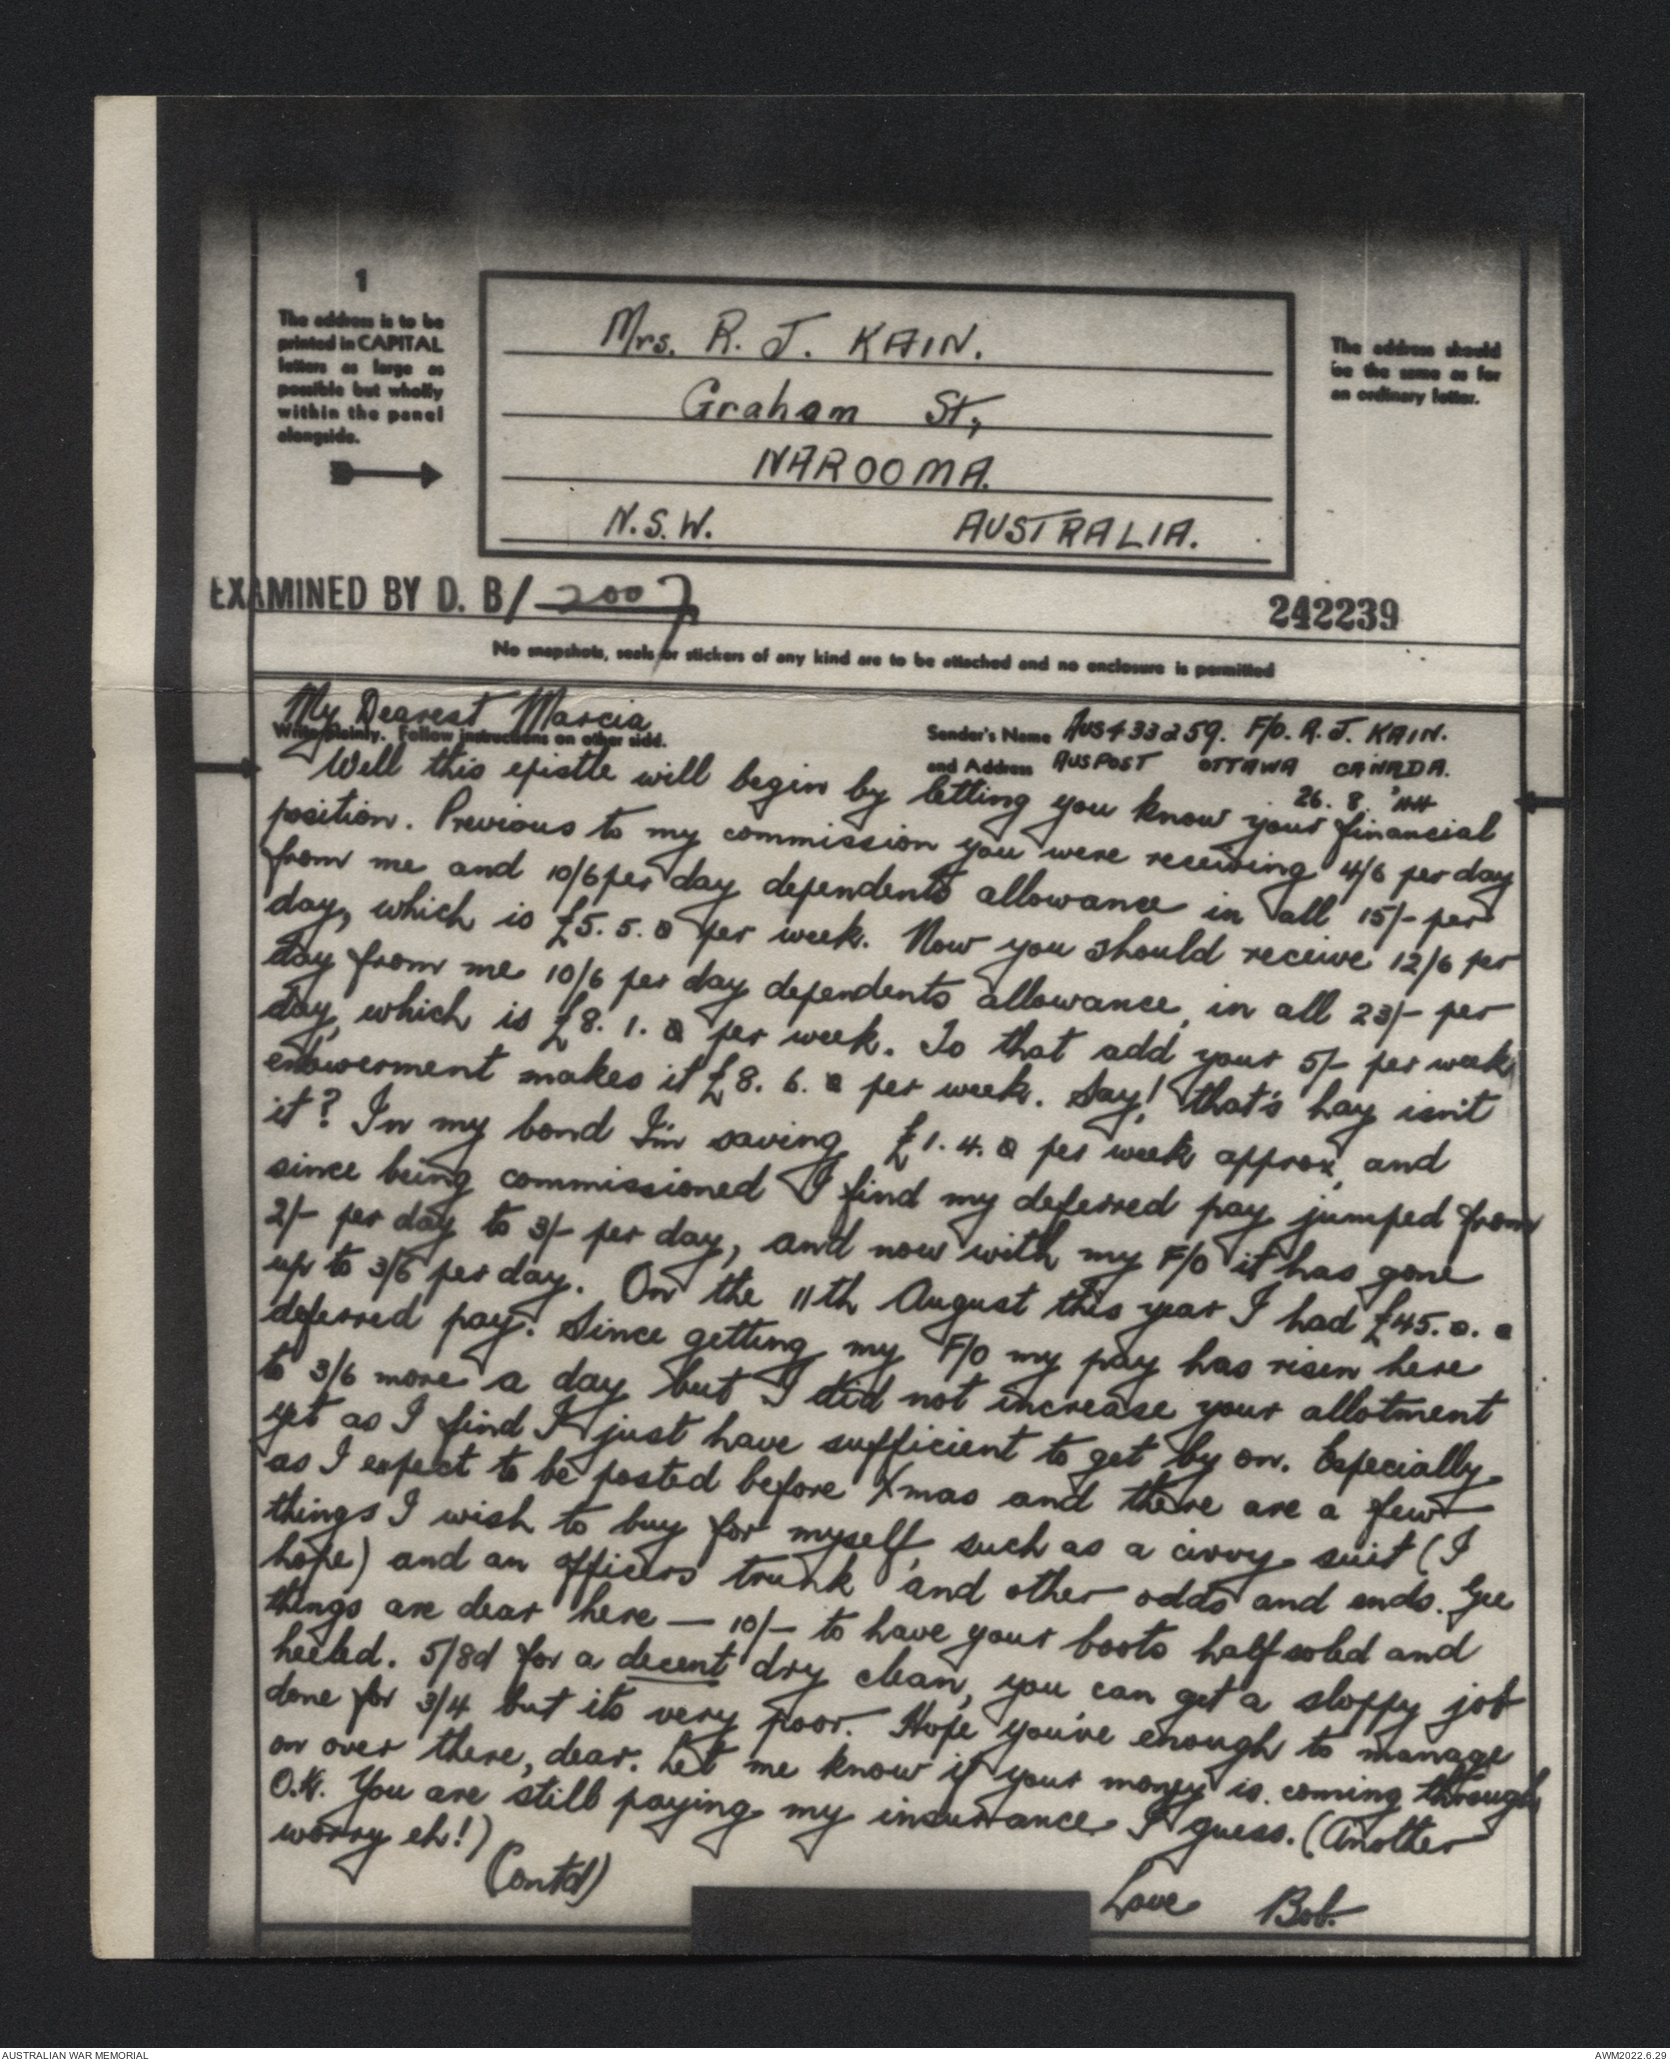 1
The address is to be
printed in CAPITAL
letters as large as
possible but wholly
within the panel
alongside.
Mrs. R. J. KAIN.
Graham St,
NAROOMA.
N.S.W. AUSTRALIA.
The address should
be the same as for
an ordinary letter.
EXAMINED BY D. B/ 2007
242239
No snapshots, seals or stickers of any kind are to be attached and no enclosure is permitted
My Dearest Marcia
Write plainly. Follow instructions on other side.
Sender's Name AUS433259. F/O. R. J. KAIN.
and Address AUSPOST OTTAWA CANADA.
26. 8. '44
Well this epistle will begin by letting you know your financial
position. Previous to my commission you were receiving 4/6 per day
from me and 10/6 per day dependents allowance in all 15/- per
day, which is £5. 5. 0 per week. Now you should receive 12/6 per
day from me 10/6 per day dependents allowance, in all 23/- per
day, which is £8. 1. 0 per week. To that add your 5/- per week
endowerment makes it £8. 6. 0 per week. Say! that's hay isn't
it? In my bond I'm saving £1. 4. 0 per week approx, and
since being commissioned I find my deferred pay jumped from
2/- per day to 3/- per day, and now with my F/O it has gone
up to 3/6 per day. On the 11th August this year I had £45. 0. 0
deferred pay. Since getting my F/O my pay has risen here
to 3/6 more a day but I did not increase your allotment
yet as I find I just have sufficient to get by on. Especially
as I expect to be posted before Xmas and there are a few
things I wish to buy for myself, such as a civvy suit (I
hope) and an officers trunk and other odds and ends. Gee
things are dear here — 10/- to have your boots half soled and
heeled. 5/8d for a decent dry clean, you can get a sloppy job
done for 3/4 but its very poor. Hope you've enough to manage
on over there, dear. Let me know if your money is coming through
O.K. You are still paying my insurance I guess. (Another
worry eh!)
(Contd)
Love Bob.
AUSTRALIAN WAR MEMORIAL
AWM2022.6.29